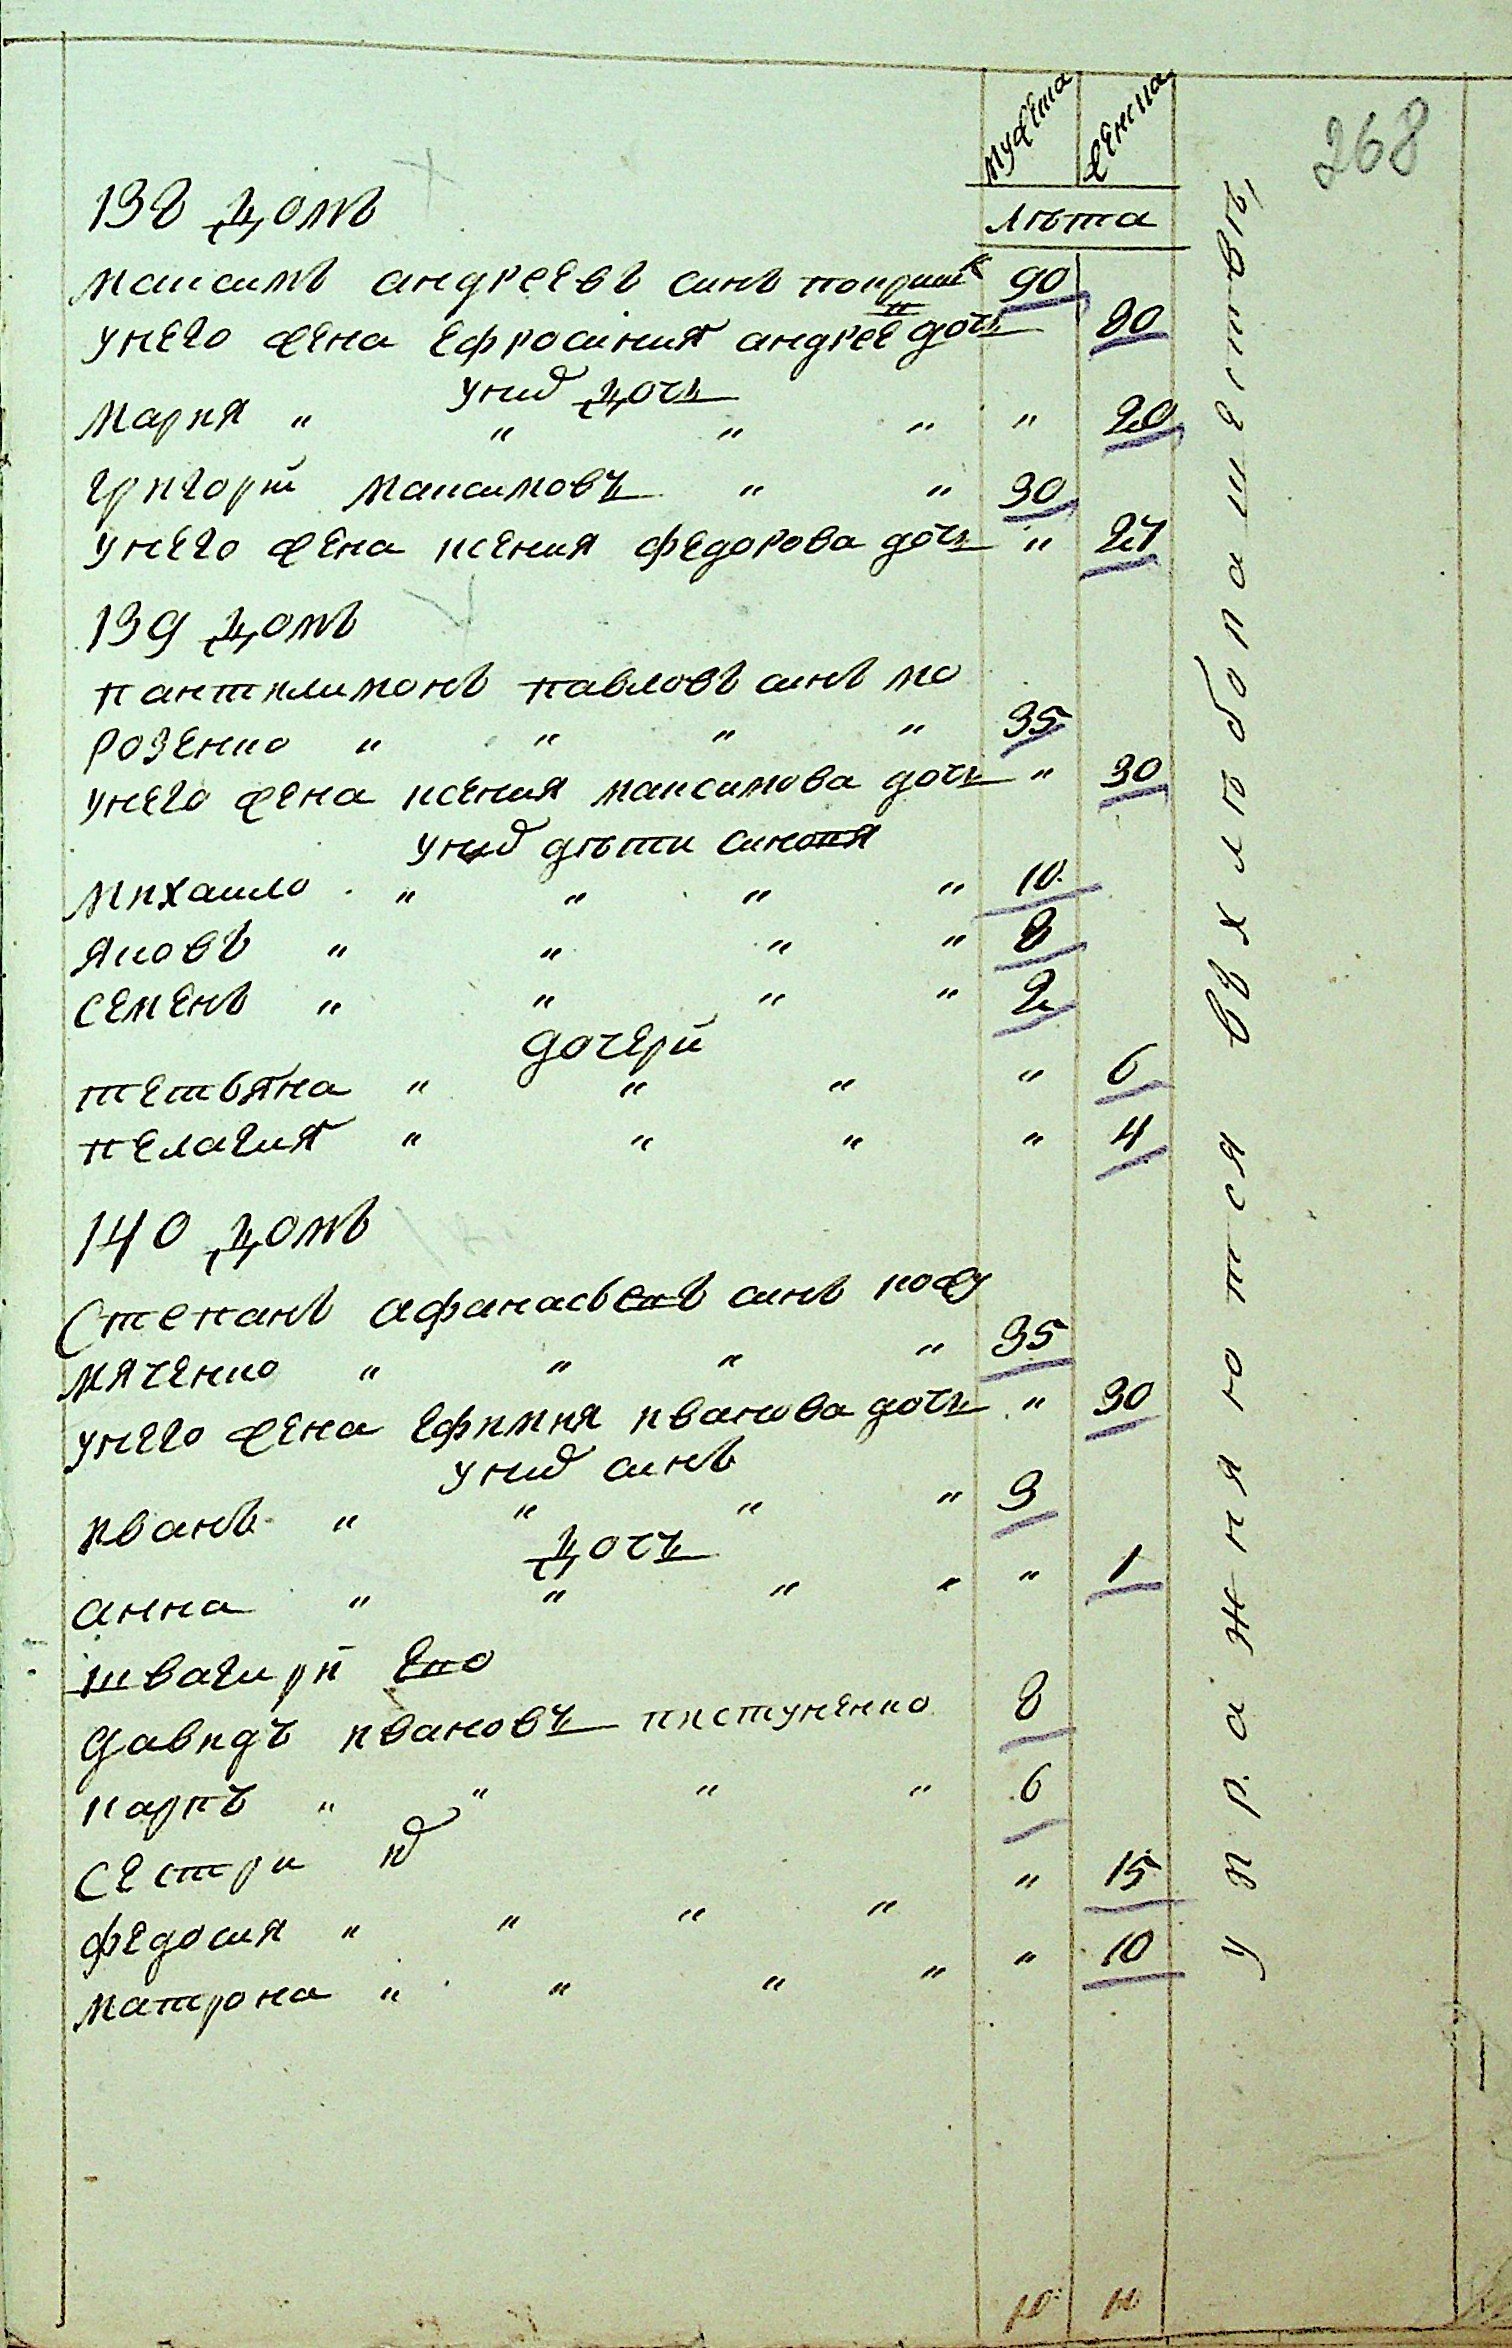 268
мужеска женска
лѣта
138 домъ
максимъ андреевъ синъ 90
унего жена ефросиния андрее дочь 80
унид дочь
мария " " " " " 20
григорій максимовъ " " 30
унего жена ксения федорова дочь " 27
139 домъ
пантилимонъ павловъ синъ мо
розенко " " " " 35
унего жена ксения максимова дочь " 30
унид дѣти синовя
михаило " " " " 10
яковъ " " " " 8
семенъ " " " " 2
дочерй
тетьяна " " " " 6
пелагия " " " " 4
140 домъ
Степанъ афанасьевъ синъ кожу
мяченко " " " " 35
унего жена ефимия иванова дочь " 30
унид синъ
иванъ " " " " 3
дочь
анна " " " " " 1
швагирй его
давидъ ивановъ пистуненко 8
карпъ " " " " 6
сестри ид " 15
федосия " " " "
матрона " " " " " 10
упражняются въ хлѣбопашествѣ,